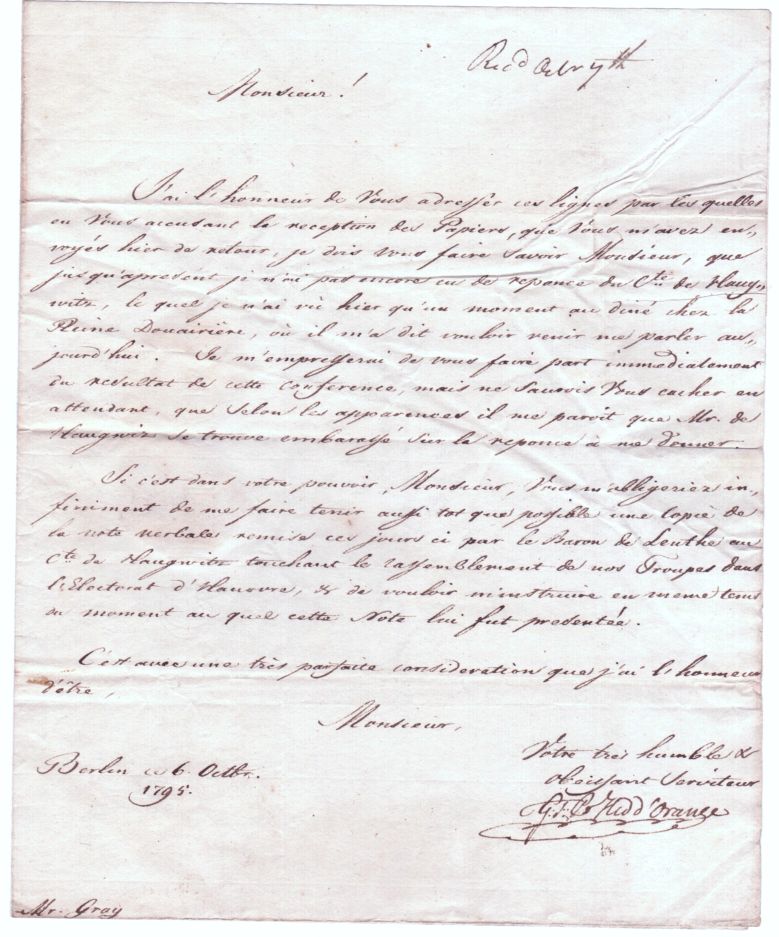 Recd Octbr 7th
Monsieur!
J'ai l'honneur de Vous adresser ces lignes par les quelles
en Vous accusant la reception des Papiers, que Vous m'avez en„
voyés hier de retour, je dois vous faire savoir Monsieur, que
jusqu'apresent je n'ai pas encore eu de reponce du Cte de Haug„
witz, le quel je n'ai vû hier qu'un moment au diné chez la
Reine Douairière, où il m'a dit vouloir venir me parler au„
jourd'hui. Je m'empresserai de vous faire part immediatement
du resultat de cette Conference, mais ne saurois Vous cacher en
attendant, que selon les apparences il me paroît que Mr. de
Haugwiz se trouve embarassé sur la reponce à me donner.
Si c'est dans votre pouvoir, Monsieur, Vous m'abligeriez in„
finiment de me faire tenir aussi tot que possible une Copie de
la note verbale remise ces jours ci par le Baron de Lenthe au
Cte de Haugwitz touchant le rassemblement de nos Troupes dans
l'Electorat d'Hanovre, & de vouloir m'instruire en meme tems
du moment au quel cette Note lui fut presentée.
C'est avec une très parfaite consideration que j'ai l'honneur
d'être,
Monsieur,
Votre très humble &
obeissant Serviteur
Berlin ce 6. Octbr.
1795.
G. F. Pr Hedd d'Orange
Mr. Gray